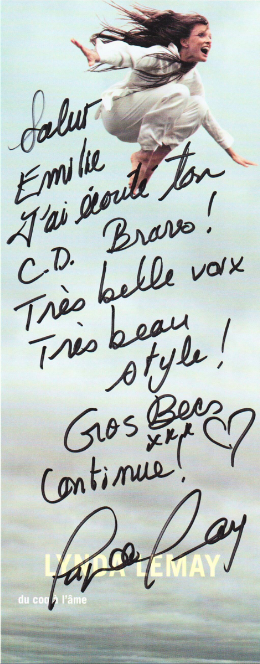 Salut
Emilie
J'ai écouté ton
C.D. Bravo!
Très belle voix
Très beau
style!
Gros Becs
xxx ♡
Continue!
LYNDA LEMAY
du coq à l'âme